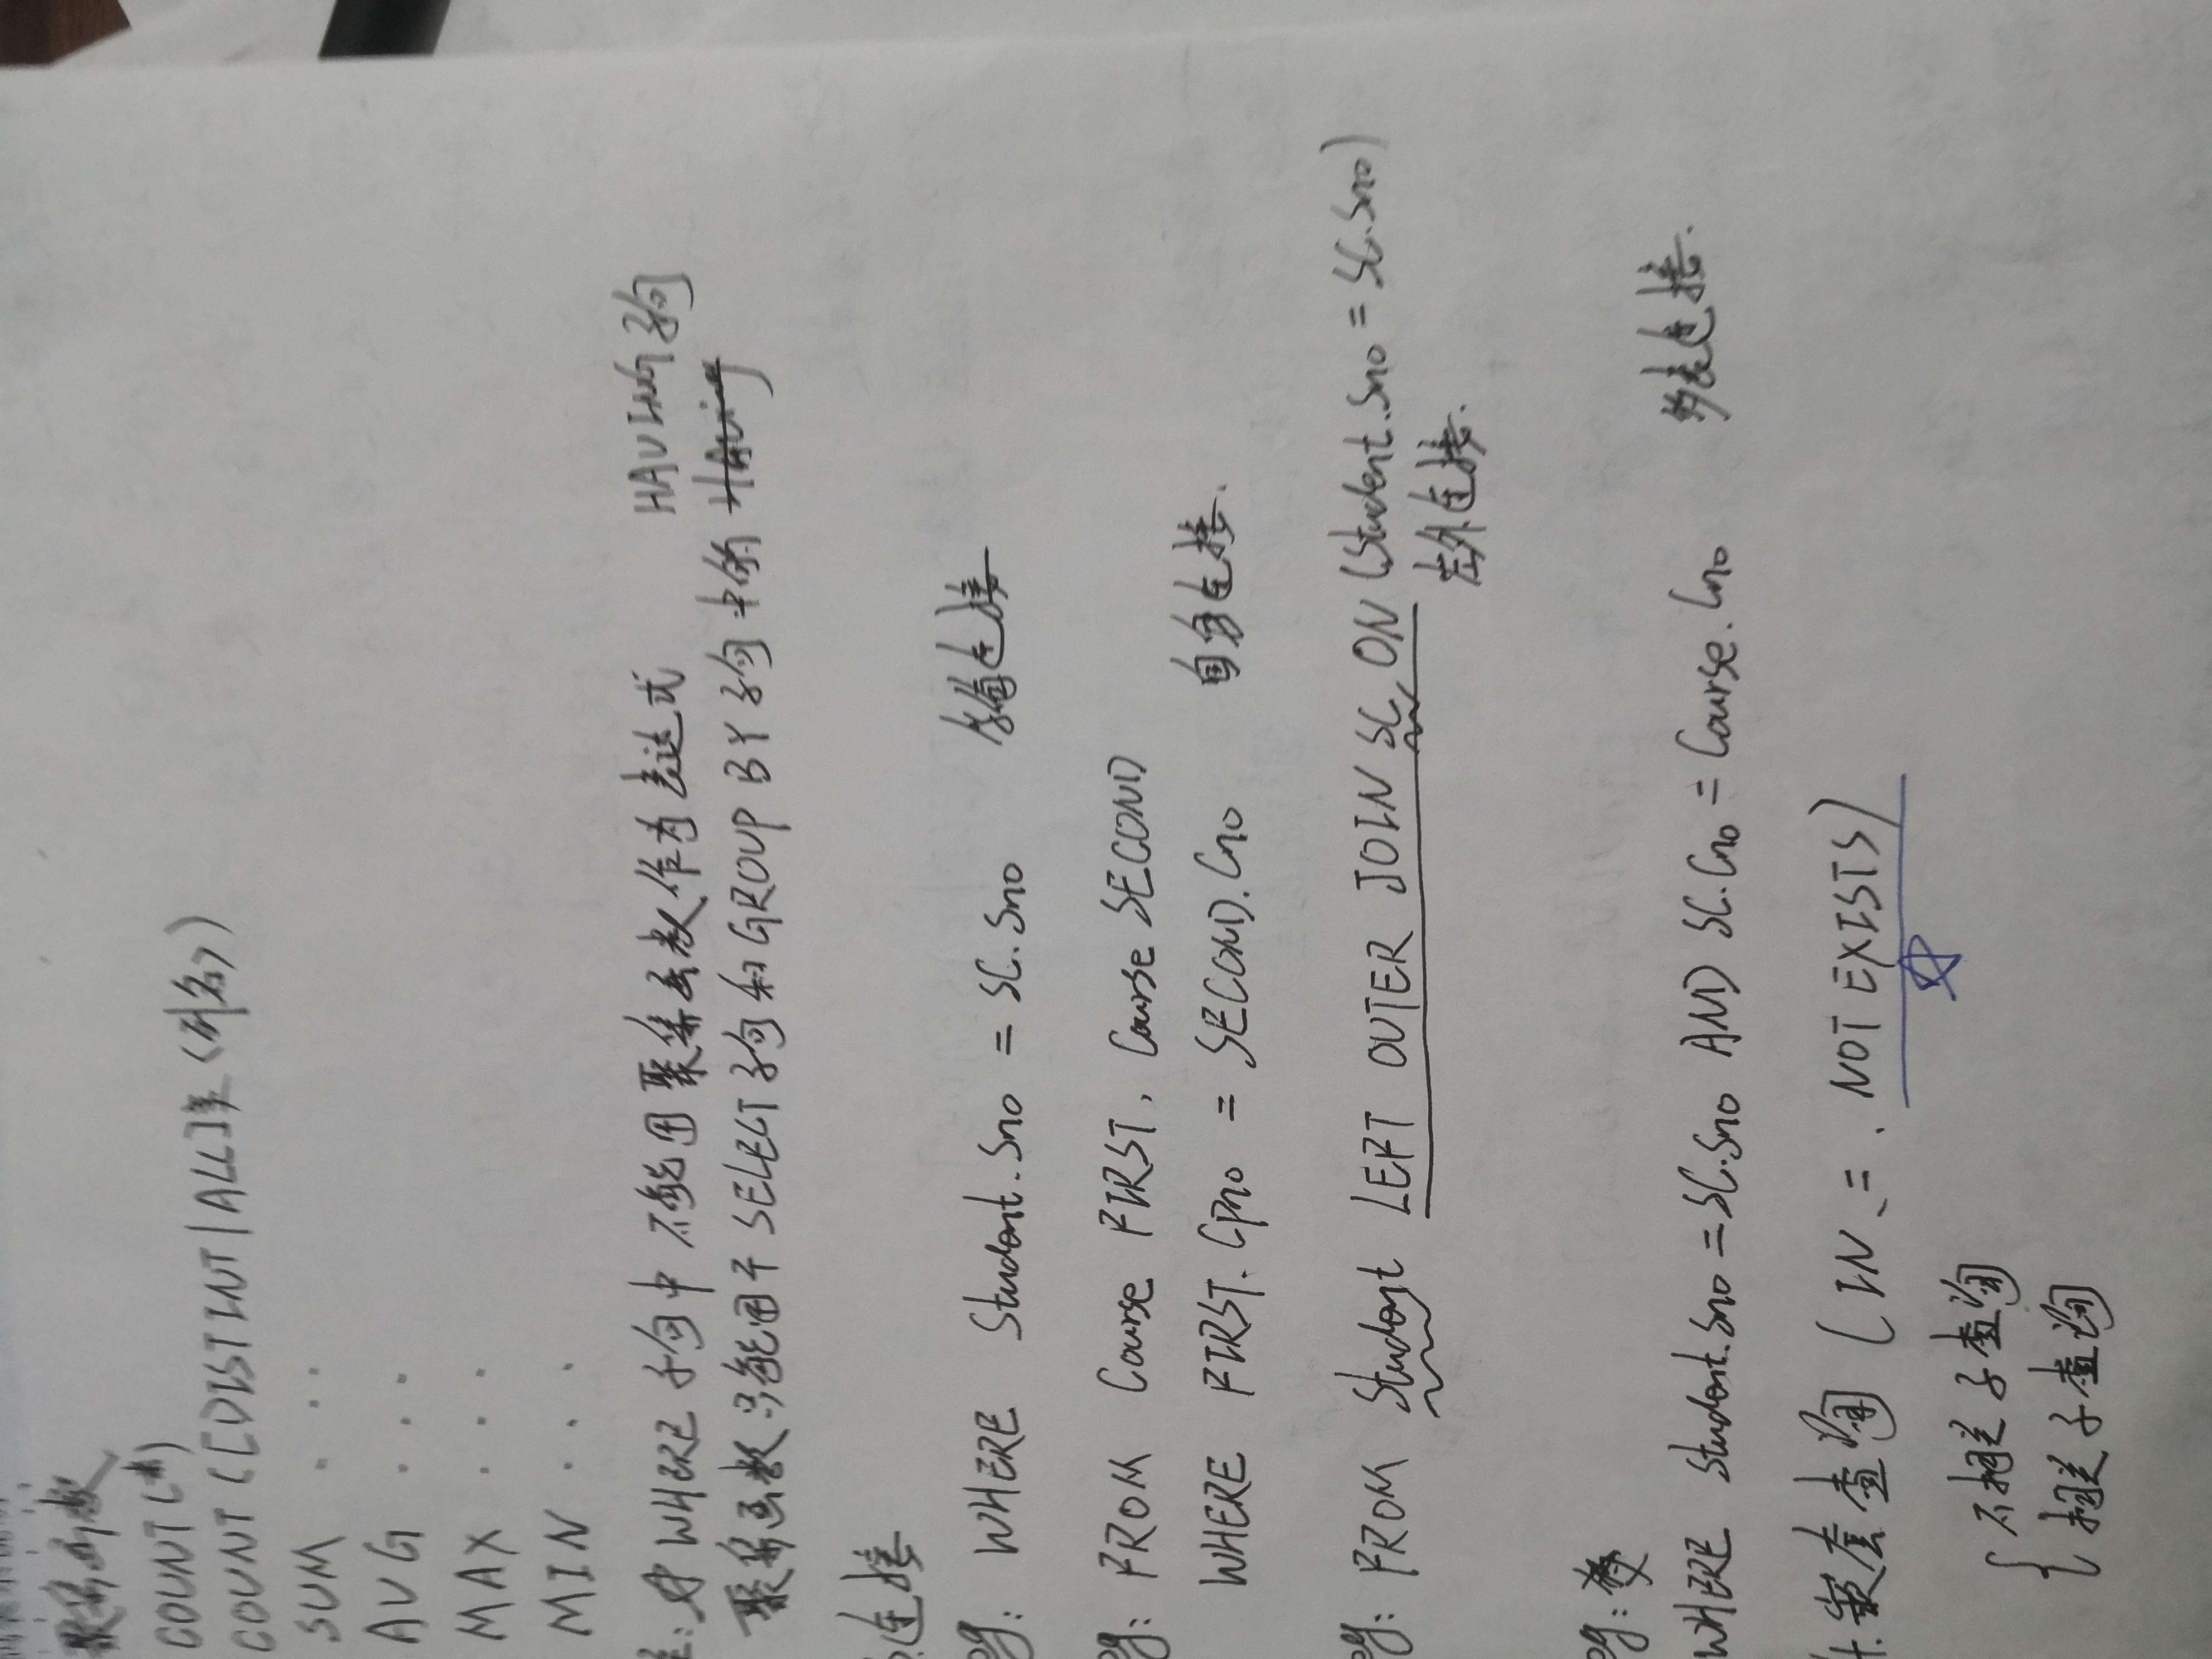 聚集函数
COUNT(*)
COUNT([DISTINT|ALL] <列名>)
SUM ...
AVG ...
MAX ...
MIN ...
注: WHERE 子句中不能用聚集函数作为表达式 HAVING 子句
聚集函数只能用于 SELECT 子句和 GROUP BY 子句中的 Having
连接
eg: WHERE Student.Sno = SC.Sno 等值连接
eg: FROM Course FIRST, Course SECOND
WHERE FIRST.Cpno = SECOND.Cno 自身连接.
eg: FROM Student LEFT OUTER JOIN SC ON (Student.Sno = SC.Sno)
左外连接.
eg:
WHERE Student.Sno = SC.Sno AND SC.Cno = Course.Cno 多表连接.
嵌套查询 (IN、=、NOT EXISTS)
不相关子查询
相关子查询